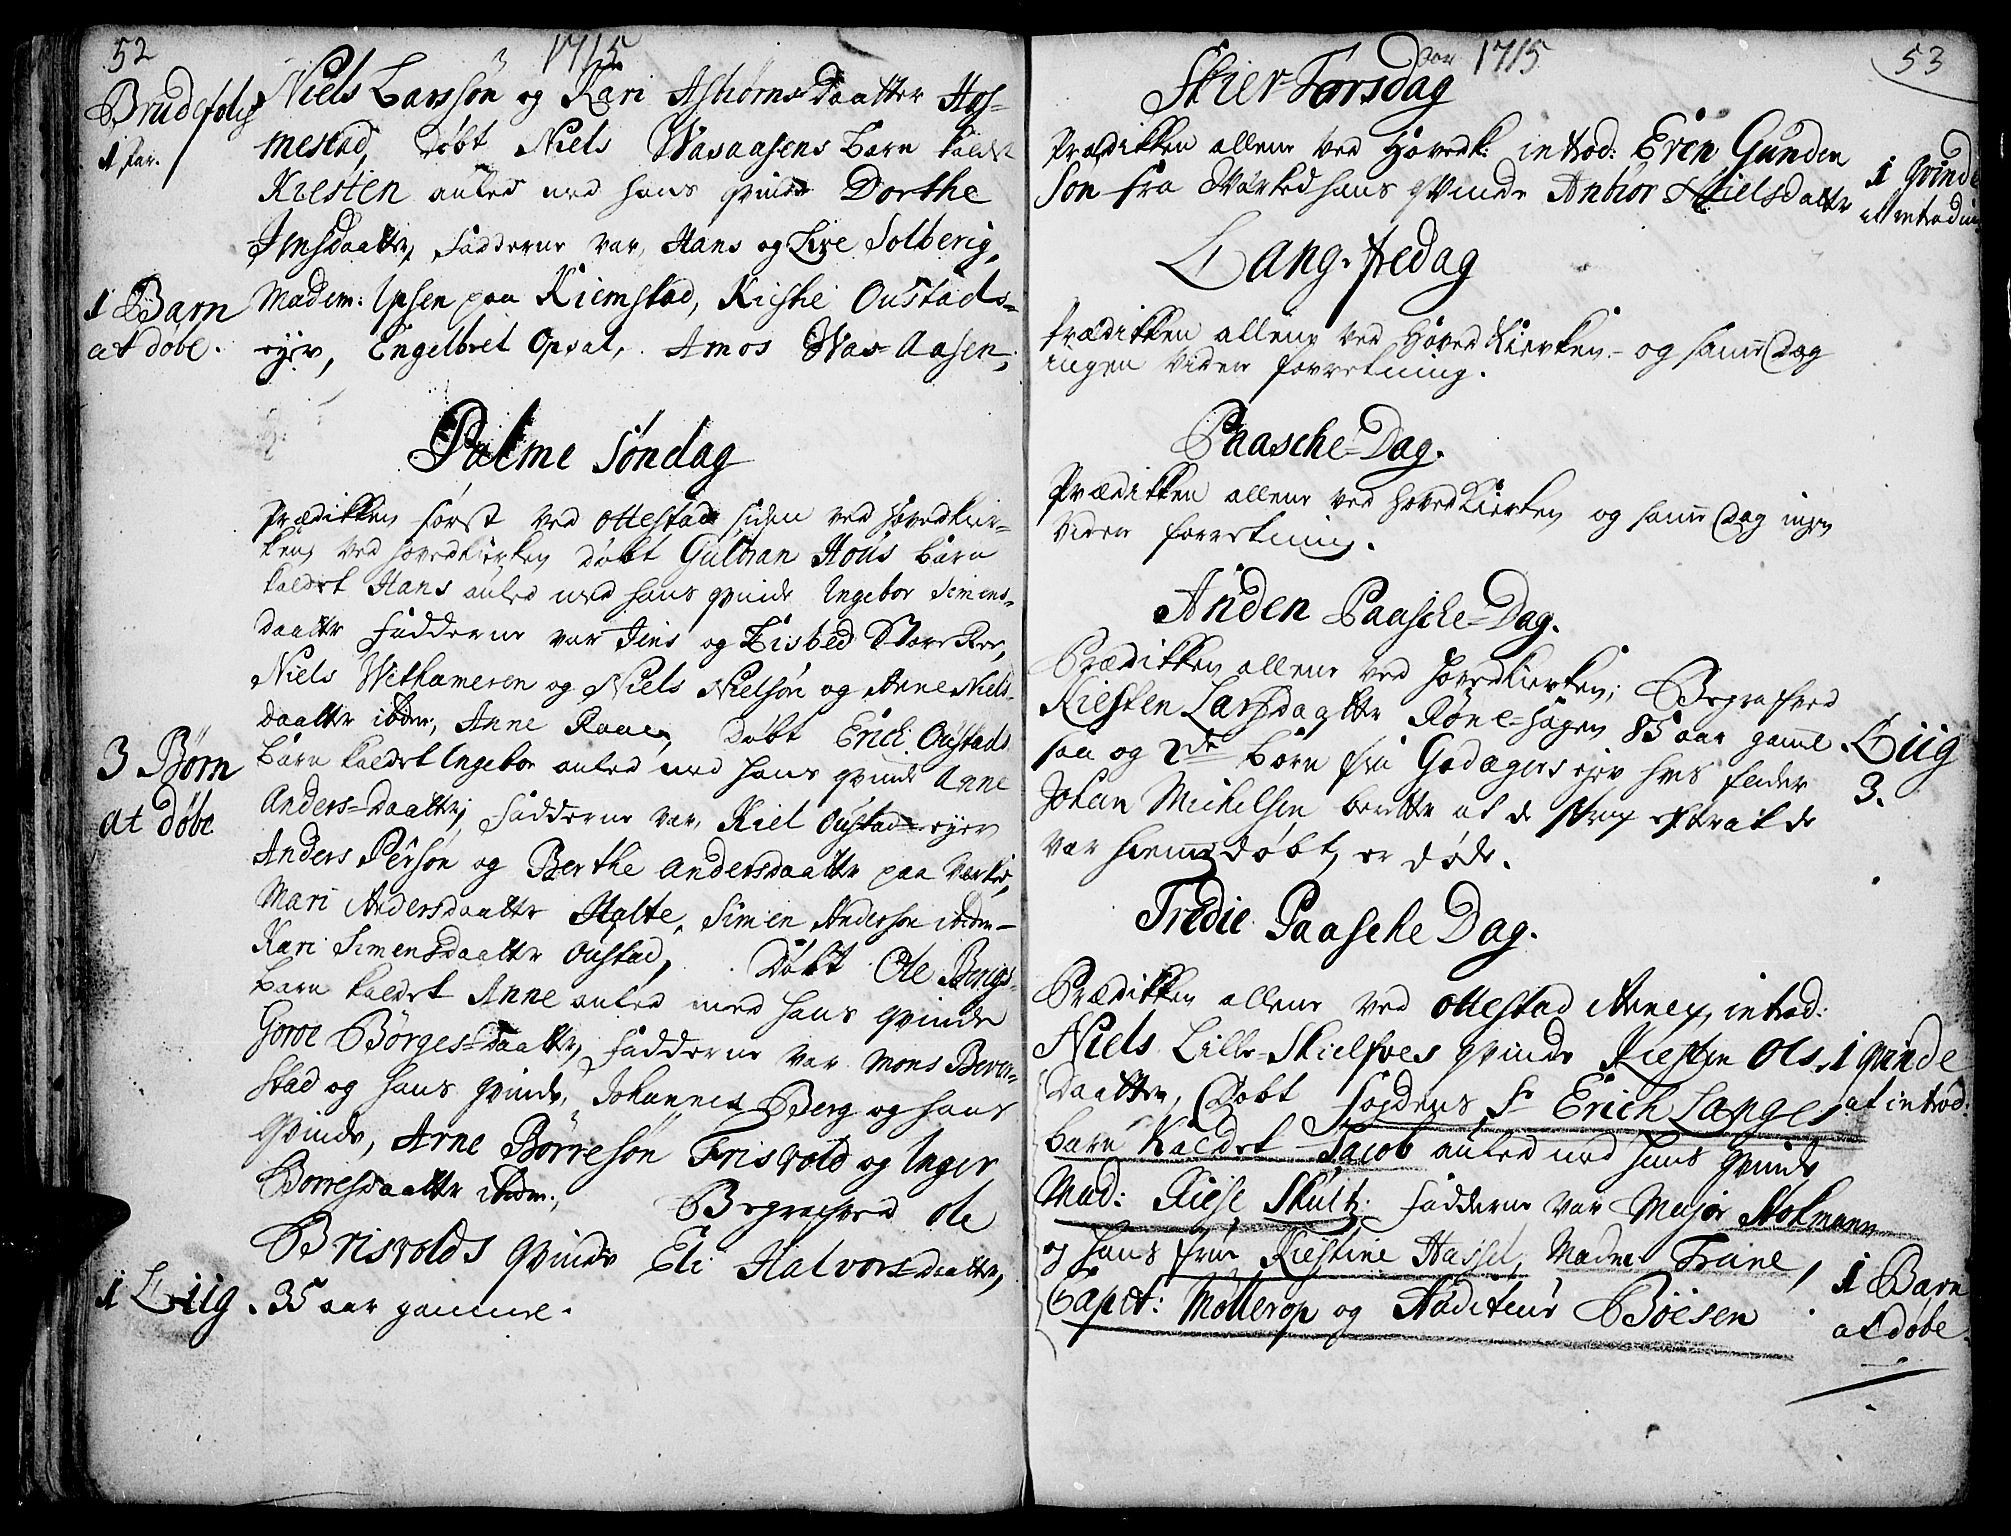 52
1715
Brudefolch
1 par.
Niels Larssøn og Kari AsbiørnsDaatter Hos-
mestad, døbt Niels Wasaasens barn kaldet
Kiesten aufled med hans qvinde Dorthe
Jensdaatter, fadderne var, Hans og Live Solberig,
1 Barn
at døbe.
Madem: Ipsen paa Kiemstad, Kirsti Oustads-
eyer, Engelbret Opsal, Amos Was Aasen,
Palme Søndag
Prædikken først ved Ottestad siden ved Hovedkier-
ken, ved Hovedkierken døbt Gulbran Hous barn
kaldet Hans aufled med hans qvinde Ingebor Simens-
daatter Fadderne var Jens og Lisbed Store Ree,
Niels Wethammeren og Niels Nielsøn og Anne Niels-
daatter ibdm, Anne Raaen, Døbt Erich Oustads
3 Børn
at døbe
Barn kaldet Ingebor aufled med hans qvinde Anne
Anders-daatter, Fadderne var, Kiel Oustad-eyer
Anders Persøn og Berthe Andersdaatter paa Verket,
Mari Andersdaatter Holte, Simen Andersøn ibdm-
Kari Simensdaatter Oustad, Døbt Ole Bergs-
Barn kaldet Anne aufled med hans qvinde
Goroe Børges-Daatter, Fadderne var Mons Bever-
stad og hans qvinde, Johannes Berg og hans
qvinde, Arne Børresøn Frisvold og Inger
Børresdaatter ibdm; Begrafved Ole
Brisvolds qvinde Eli Halvors-daatter,
1 Liig. 35 aar gammel.
Aar 1715
53
Skier-Torsdag
Prædikken allene ved Hovedk: introd: Even Gunder
Søn fra Værked hans qvinde Anbiør Nielsdatter
1 qvinde
at introduc
Lang-fredag
Prædikken allene ved Hoved Kierken- og samme Dag
ingen videre forretning.
Paasche-Dag.
Prædikken allene ved Hoved Kierken og samme Dag ingen
videre forretning.
Anden Paasche-Dag.
Prædikken allene ved Hovedkierken; Begrafved
Kiesten Larsdaatter Røne-Hagen 85 aar gaml
saa og 2de børn fra Godagers eyer hvis fader
Johan Michelsen beretter at de strax efter at de
var hiemdøbt, er døde.
Liig
3.
Tredie Paasche Dag.
Prædikken allene ved Ottestad Annex, introd:
Niels Lille-Skielfves qvinde Kiesten Ols-
daatter, Døbt fogdens Sr Erich Langes
barn Kaldet Jacob aufled med hans qvinde
Mad: Kiese Skultz. Fadderne var Major Stokmann
og hans frue Kiestine Hassel, Madm Trine,
Capit: Møllerop og Auditeur Boesen
1 qvinde
at introd:
1 Barn
at døbe.